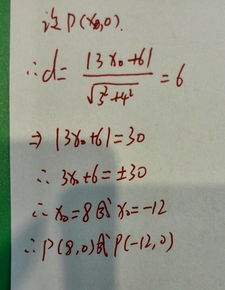 设P(x₀,0).
∴d=|3x₀+6|/√(3²+4²)=6
⇒|3x₀+6|=30
∴3x₀+6=±30
∴x₀=8或x₀=-12
∴P(8,0)或P(-12,0)